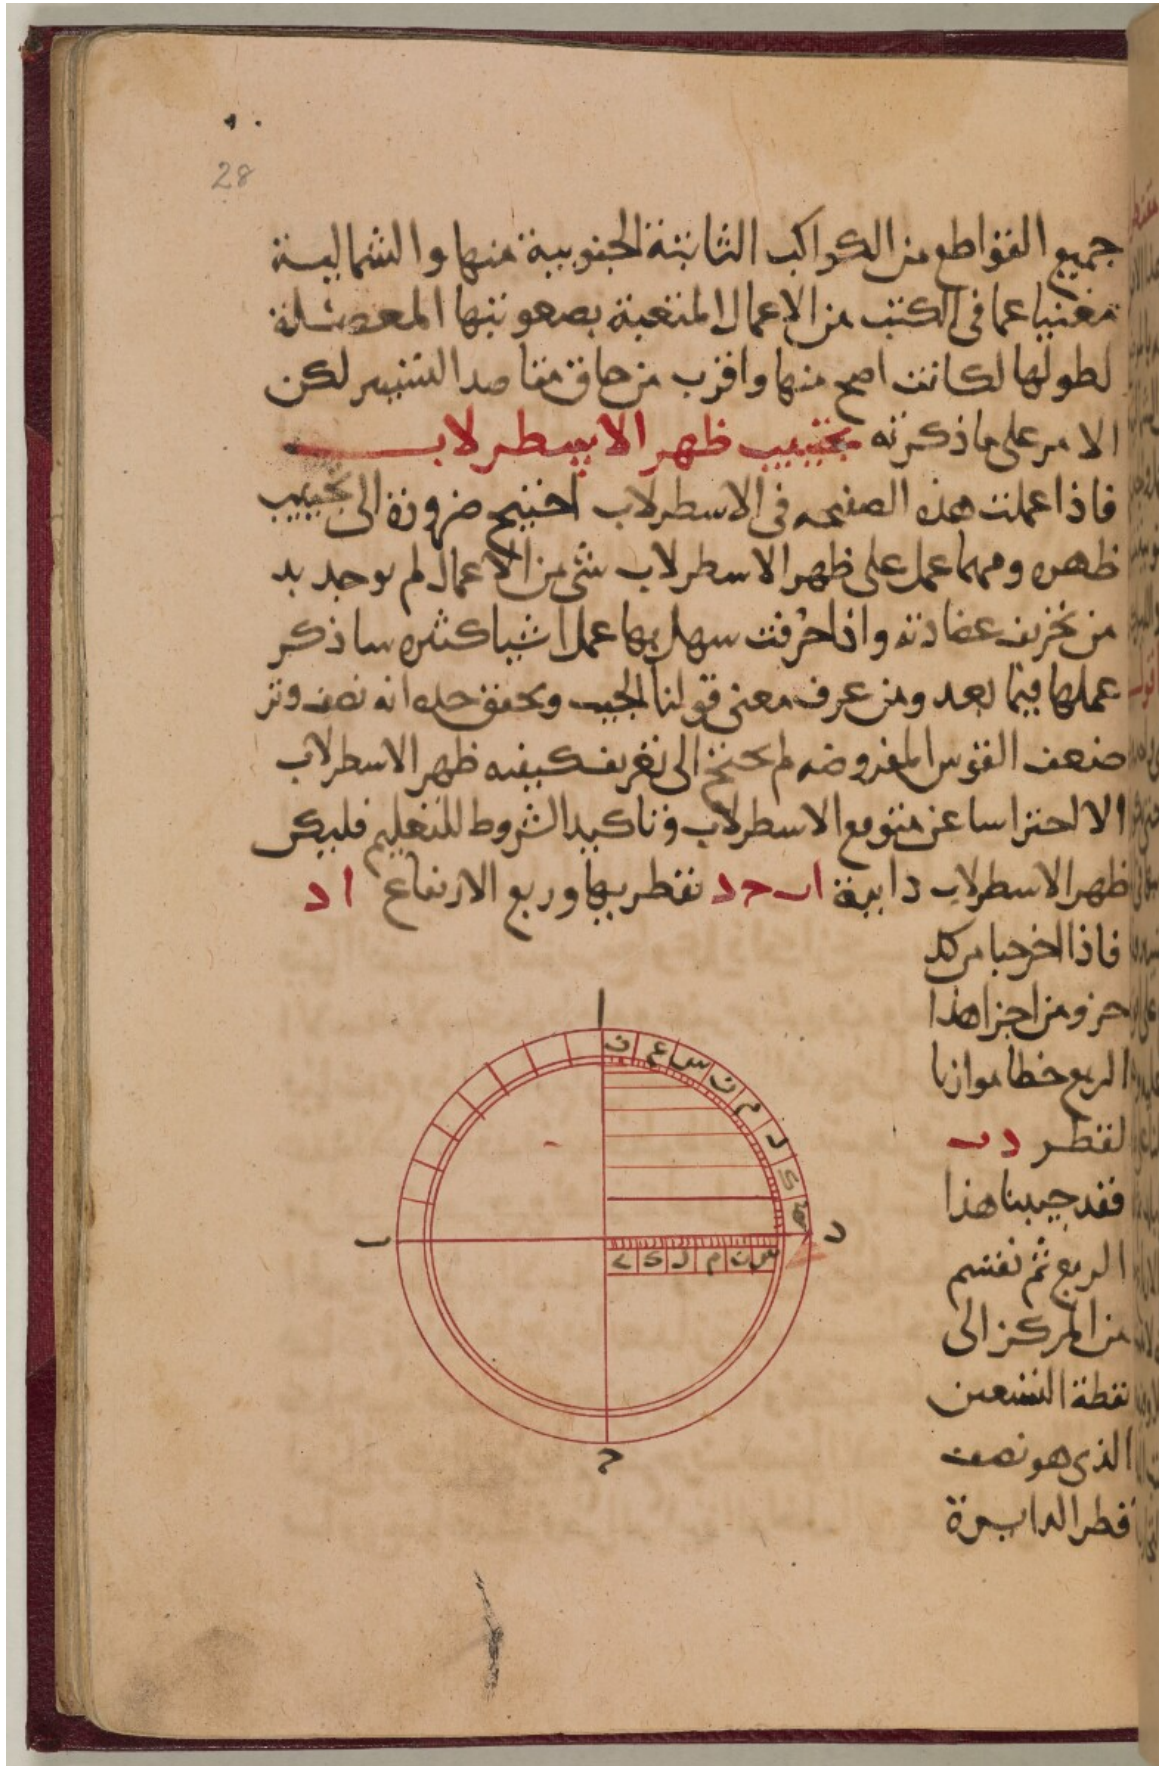 28
جميع القواطع من الكواكب الثابتة الجنوبية منها والشمالية
مغنيا عما في الكتب من الاعمال المتعبة بصعوبتها المعضلة
لطولها لكانت اصح منها واقرب من حاق مقاصد التسيير لكن
الامر على ما ذكرته تجييب ظهر الاسطرلاب
فاذا عملت هذه الصفيحه في الاسطرلاب احتيج ضرورة الى تجييب
ظهره ومهما عمل على ظهر الاسطرلاب شى من الاعمال لم يوجد بد
من تحريف عضادته واذا حرفت سهل بها عمل اشيا كثيره ساذكر
عملها فيما بعد ومن عرف معنى قولنا الجيب وتحقق حده انه نصف وتر
ضعف القوس المفروضه لم يحتج الى تعريف كيفيه ظهر الاسطرلاب
الا احتراسا عن الاسطرلاب وتاكيد الشروط للتعليم فليكن
ظهر الاسطرلاب دايرة ا ب ح د بقطريها وربع الارتفاع ا د
فاذا اخرجنا من كل
جزو من اجزا هذا
الربع خطا موازيا
لقطر د ب
فقد جيبنا هذا
الربع ثم نقسم
من المركز الى
نقطة التسعين
الذى هو نصف
قطر الدايرة
ا
ف ع س ن م ل ك
ب
د
ى ك ل م ن س
ح